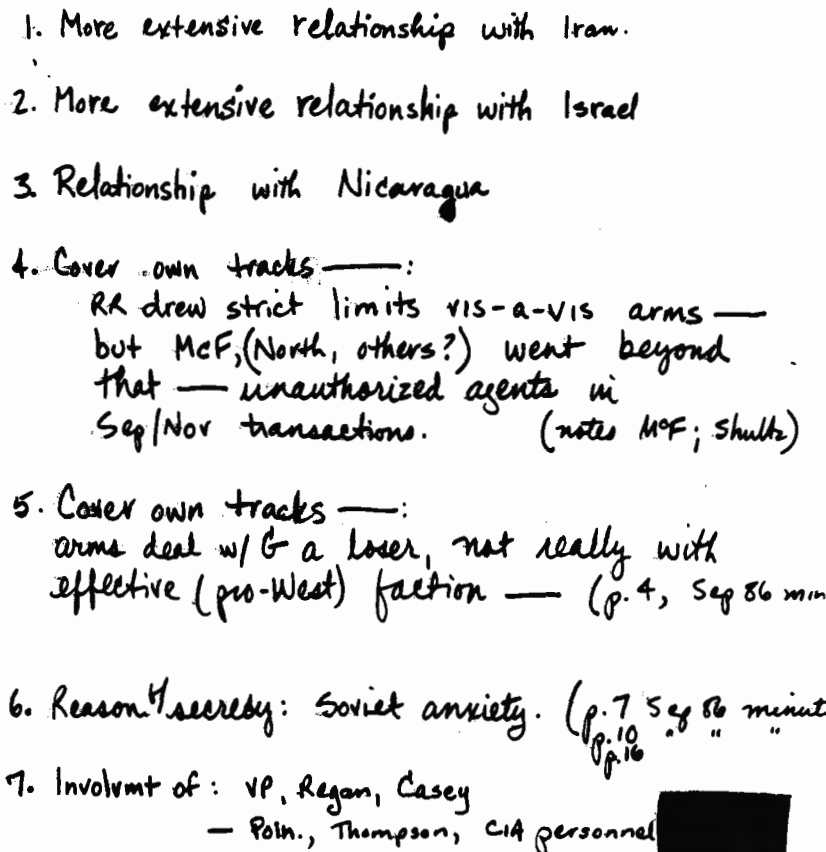 1. More extensive relationship with Iran.
2. More extensive relationship with Israel
3. Relationship with Nicaragua
4. Cover own tracks —:
RR drew strict limits vis-a-vis arms —
but McF, (North, others?) went beyond
that — unauthorized agents in
Sep/Nov transactions. (notes McF; Shultz)
5. Cover own tracks —:
arms deal w/ G a loser, not really with
effective (pro-West) faction — (p. 4, Sep 86 min
6. Reason of secrecy: Soviet anxiety. (p. 7 Sep 86 minut
p. 10 " " "
p. 16
7. Involvmt of: VP, Regan, Casey
— Poin., Thompson, CIA personnel